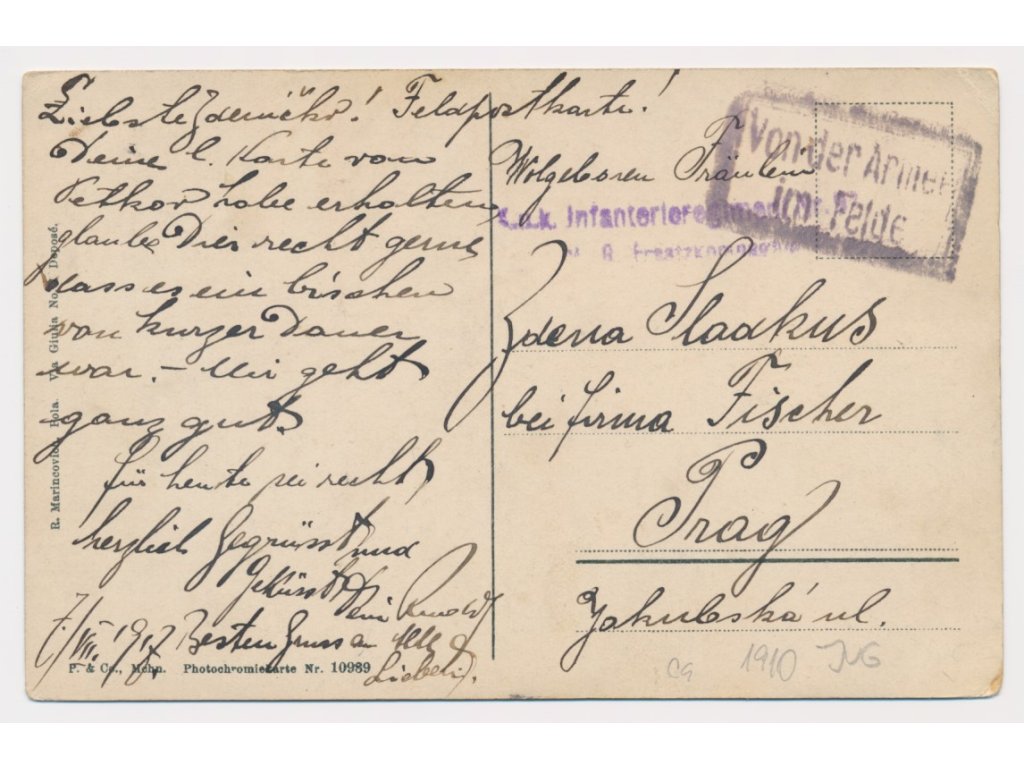 Liebste Zdeničko! Feldpostkarte!
Deine l. Karte vom
habe erhalten
glaube Dier recht gerne
dass es ein bischen
von kurzer Dauer
war. – Mir geht
ganz gut.
für heute sei recht
herzlich Gegrüsst und
Geküsst
Dein Rudolf
7./VII. 1917 Besten Gruss an alle
Lieben.
Wolgeboren Fräulein
Zdena Sladkus
bei firma Fischer
Prag
Jakubská ul.
Von der Armee
im Felde
K.u.k. Infanterieregiment
Ersatzkompagnie
R. Marincovich, Pola. Via Giulia No. Deposé.
P. & Co., Mchn. Photochromiekarte Nr. 10989
1910